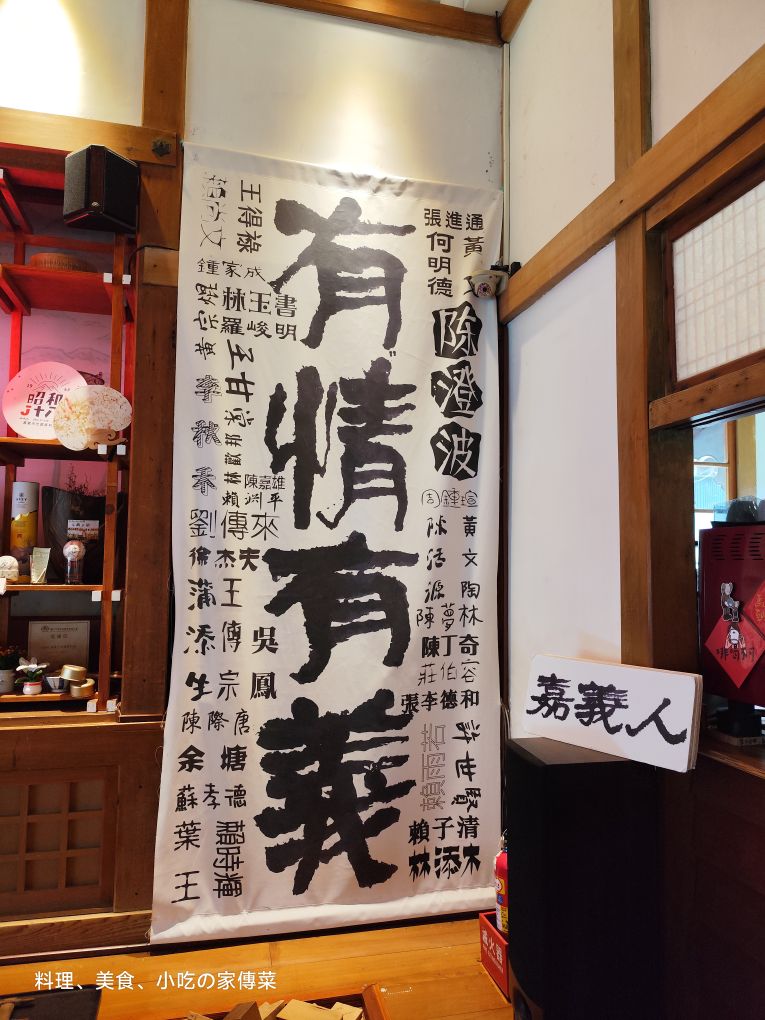 有情有義
張進通
何明德
黃文陶
陳澄波
周鍊瑄
陳活源
黃文陶
陳夢林
陳丁奇
莊伯容
張李德和
賴雨若
許世賢
賴子清
林添木
王得祿
鍾家成
林玉書
羅峻明
王甘棠
陳嘉雄
賴淵平
李秋香
劉傳來
徐杰夫
蒲添生
王傳宗
吳鳳
陳際唐
余塘
蘇孝德
葉王
賴時輝
嘉義人
昭和
J十八
滅火器
料理、美食、小吃の家傳菜